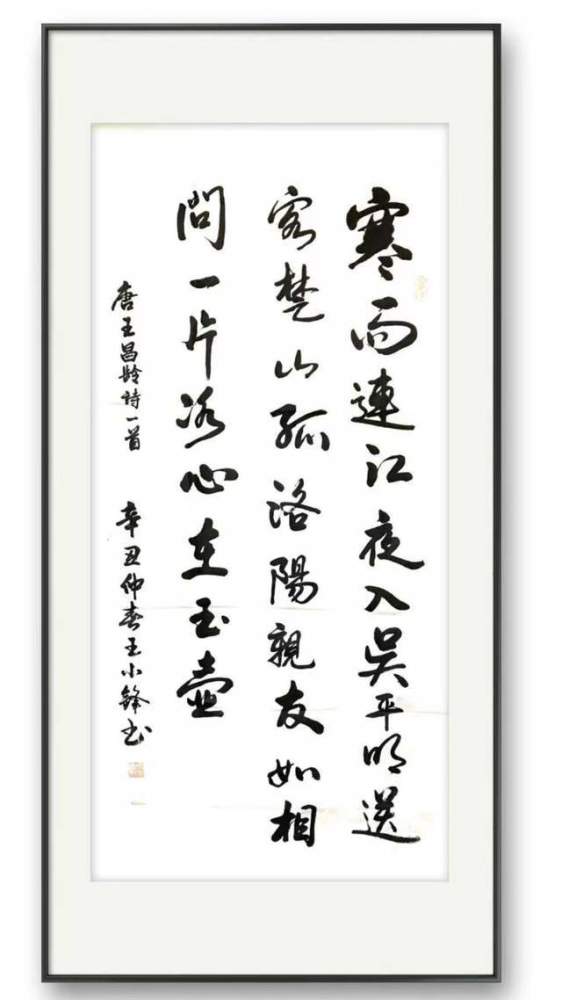 寒雨連江夜入吳平明送
客楚山孤洛陽親友如相
問一片冰心在玉壺
唐王昌齡詩一首 辛丑仲春王小鋒书